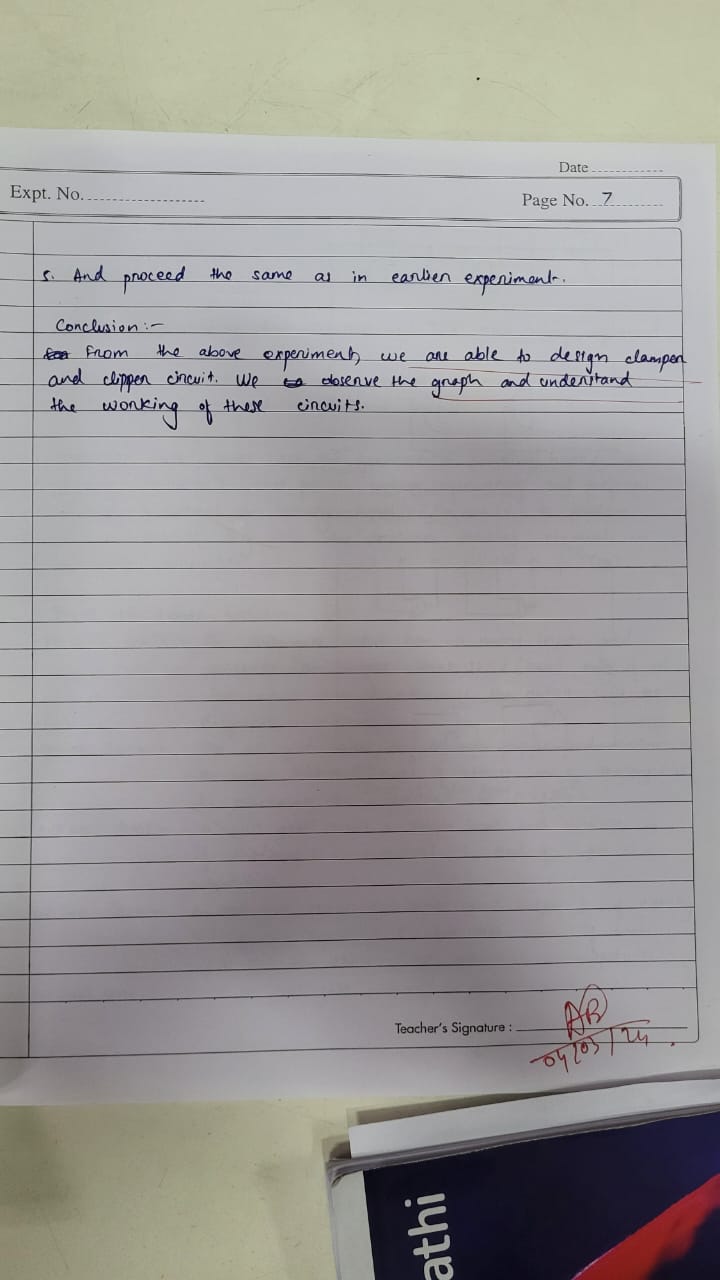 Date
Expt. No.
Page No. 7
5. And proceed the same as in earlier experiment.
Conclusion :-
From the above experiment, we are able to design clamper
and clipper circuit. We observe the graph and understand
the working of these circuits.
Teacher's Signature :
AB
04/03/24
athi